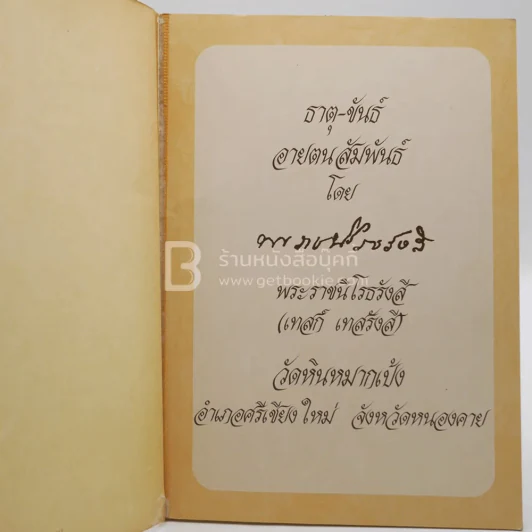 ธาตุ-ขันธ์
อายตนสัมพันธ์
โดย
ร้านหนังสือบุ๊คกี้
www.getbookie.com
พระราชนิโรธรังสี
(เทสก์ เทสรังสี)
วัดหินหมากเป้ง
อำเภอศรีเชียงใหม่ จังหวัดหนองคาย